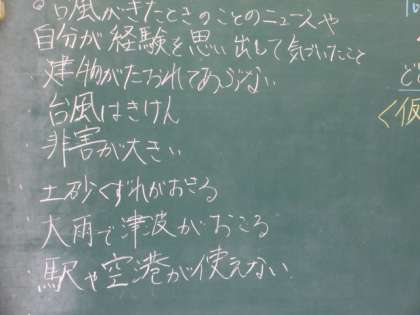 台風がきたときのことのニュースや
自分が経験を思い出して気づいたこと
・建物がたおれてあぶない
台風はきけん
・非害が大きい
・土砂くずれがおきる
・大雨で津波がおころ
・駅や空港が使えない
ど
<仮